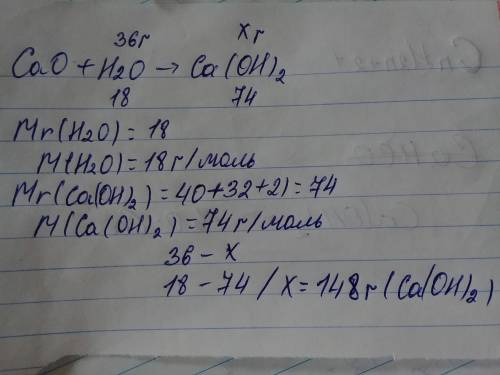 36г xг
CaO + H2O → Ca(OH)2
18 74
Mr(H2O) = 18
M(H2O) = 18 г/моль
Mr(Ca(OH)2) = 40+32+2) = 74
M(Ca(OH)2) = 74 г/моль
36 - x
18 - 74 / x = 148 г (Ca(OH)2)